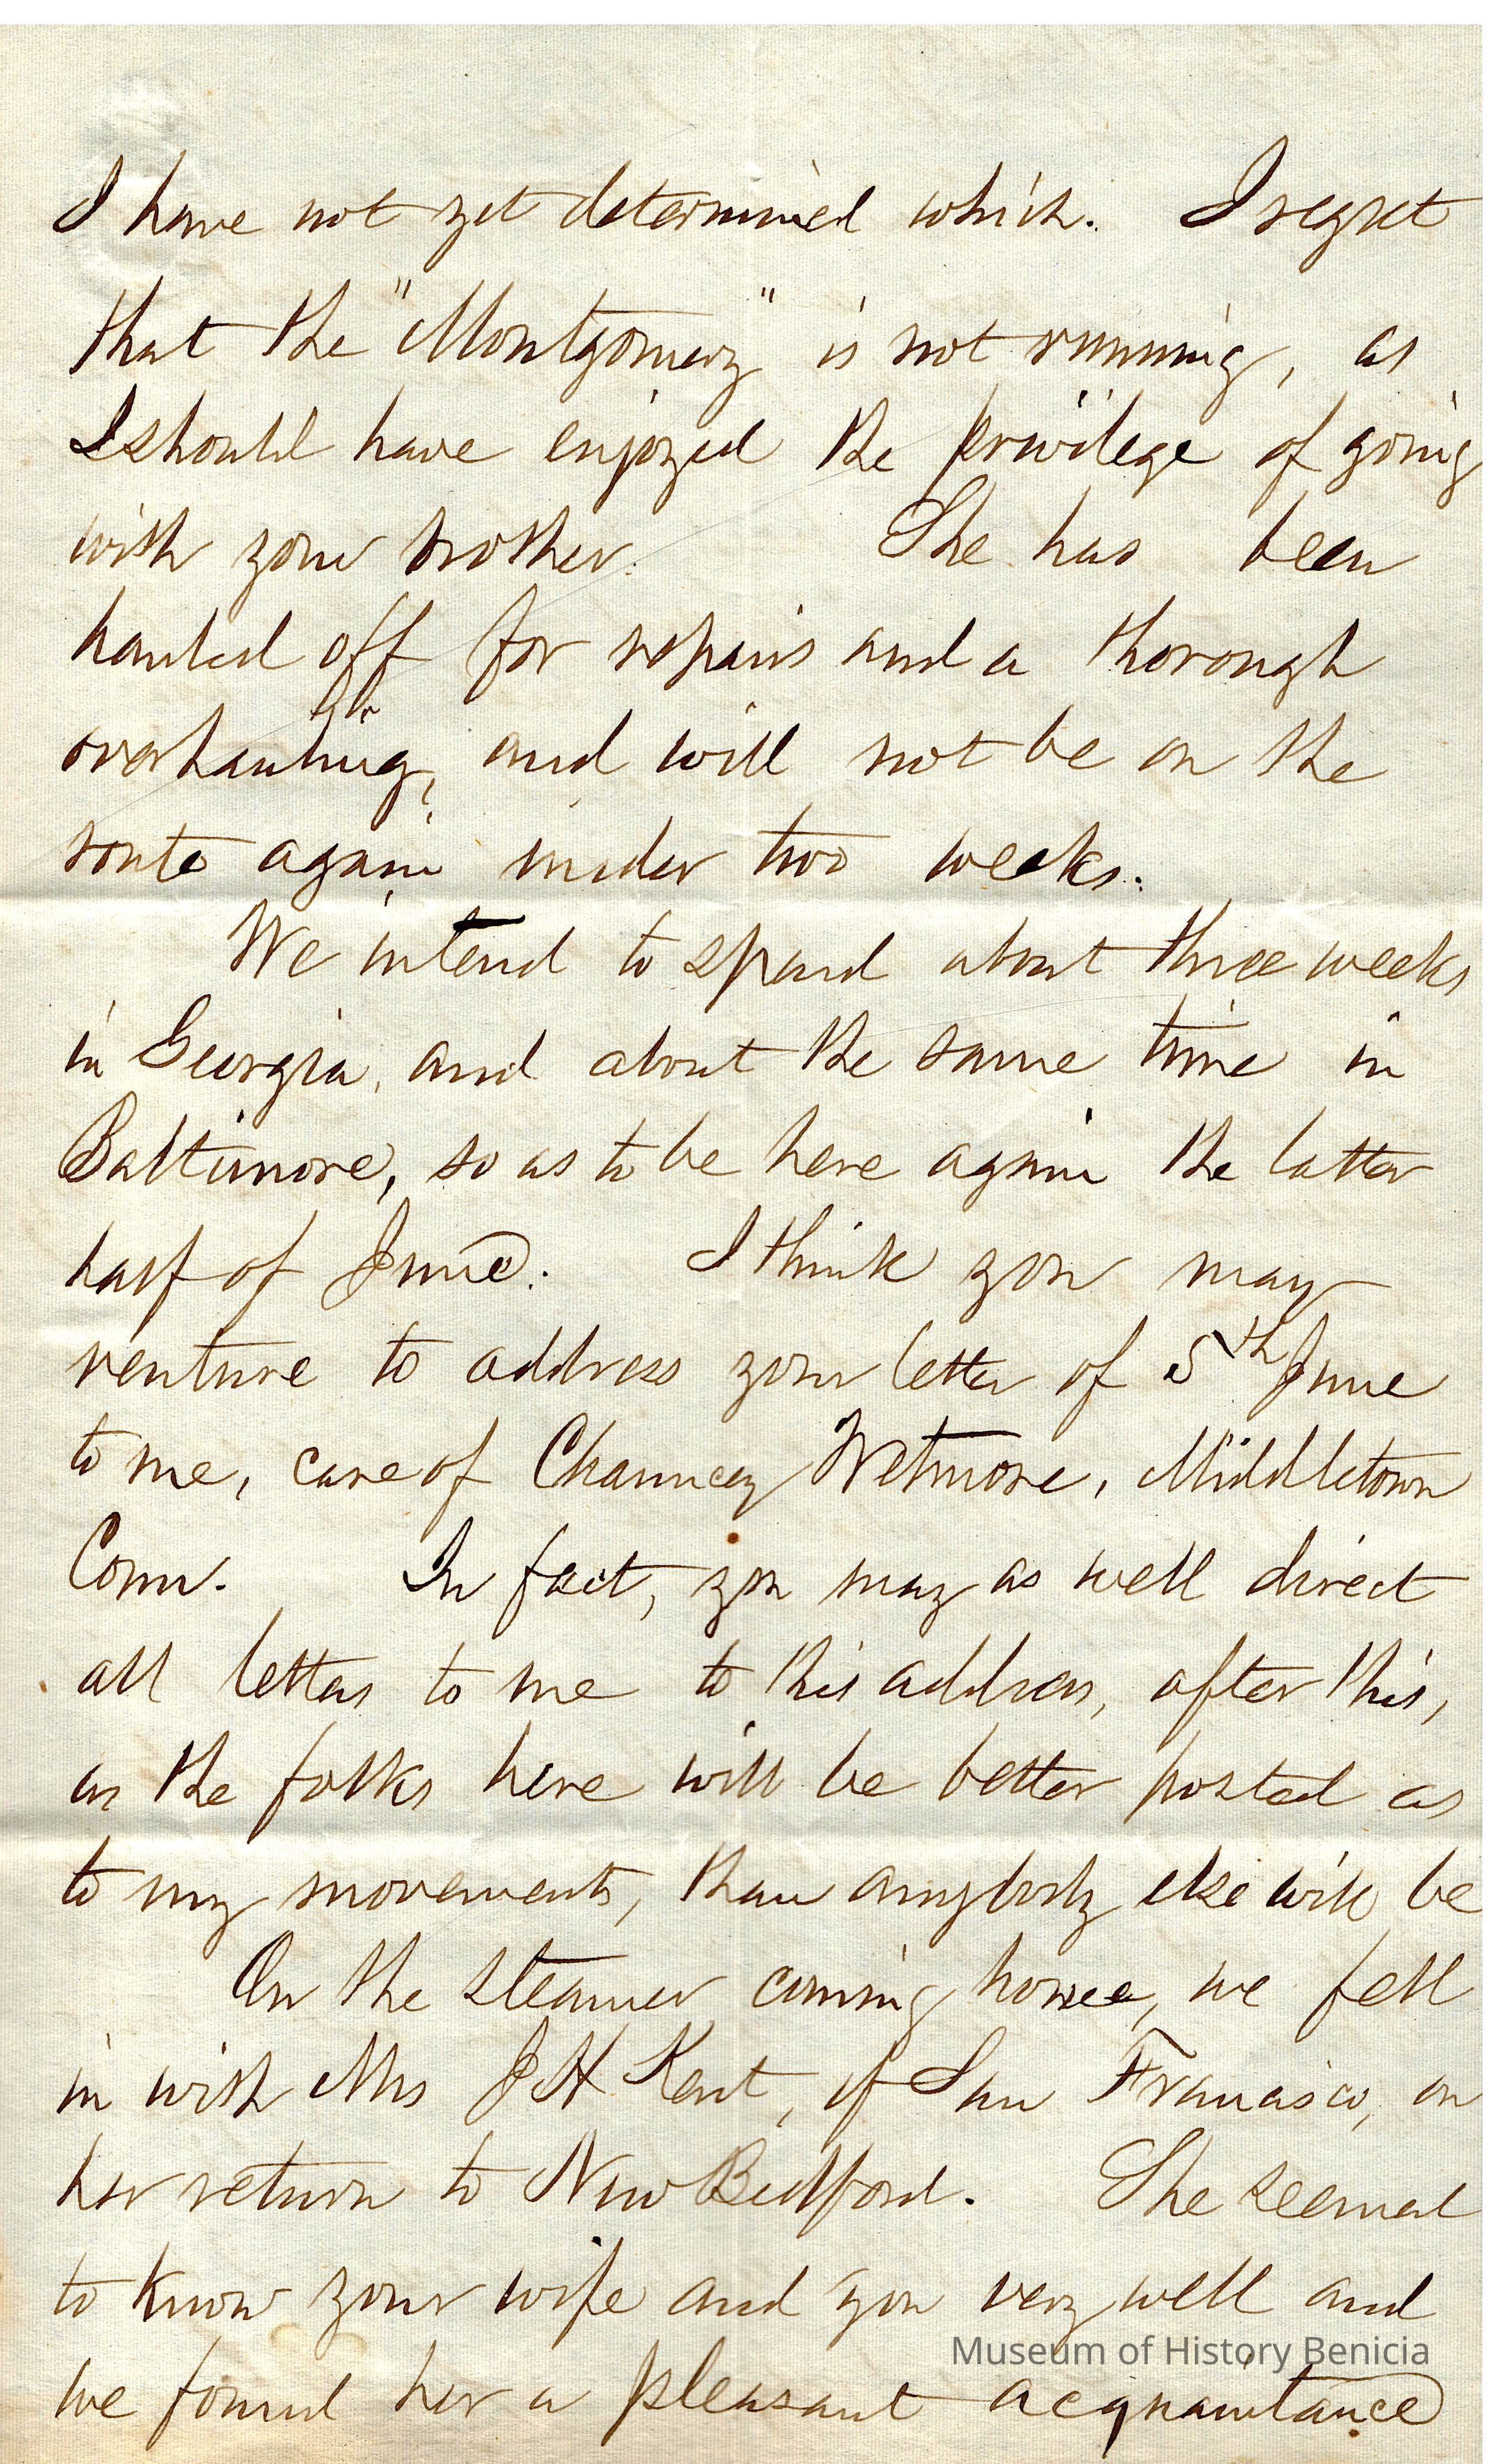 I have not yet determined which. I regret
that the "Montgomery" is not running, as
I should have enjoyed the privilege of going
with your brother. She has been
hauled off for repairs and a thorough
overhauling, and will not be on the
route again under two weeks.
We intend to spend about three weeks
in Georgia, and about the same time in
Baltimore, so as to be here again the latter
half of June. I think you may
venture to address your letter of 5th June
to me, care of Chauncey Wetmore, Middletown
Conn. In fact, you may as well direct
all letters to me to this address, after this,
as the folks here will be better posted as
to my movements, than anybody else will be
On the steamer coming home, we fell
in with Mrs J H Kent, of San Francisco, on
her return to New Bedford. She seemed
to know your wife and you very well and
Museum of History Benicia
we found her a pleasant acquaintance